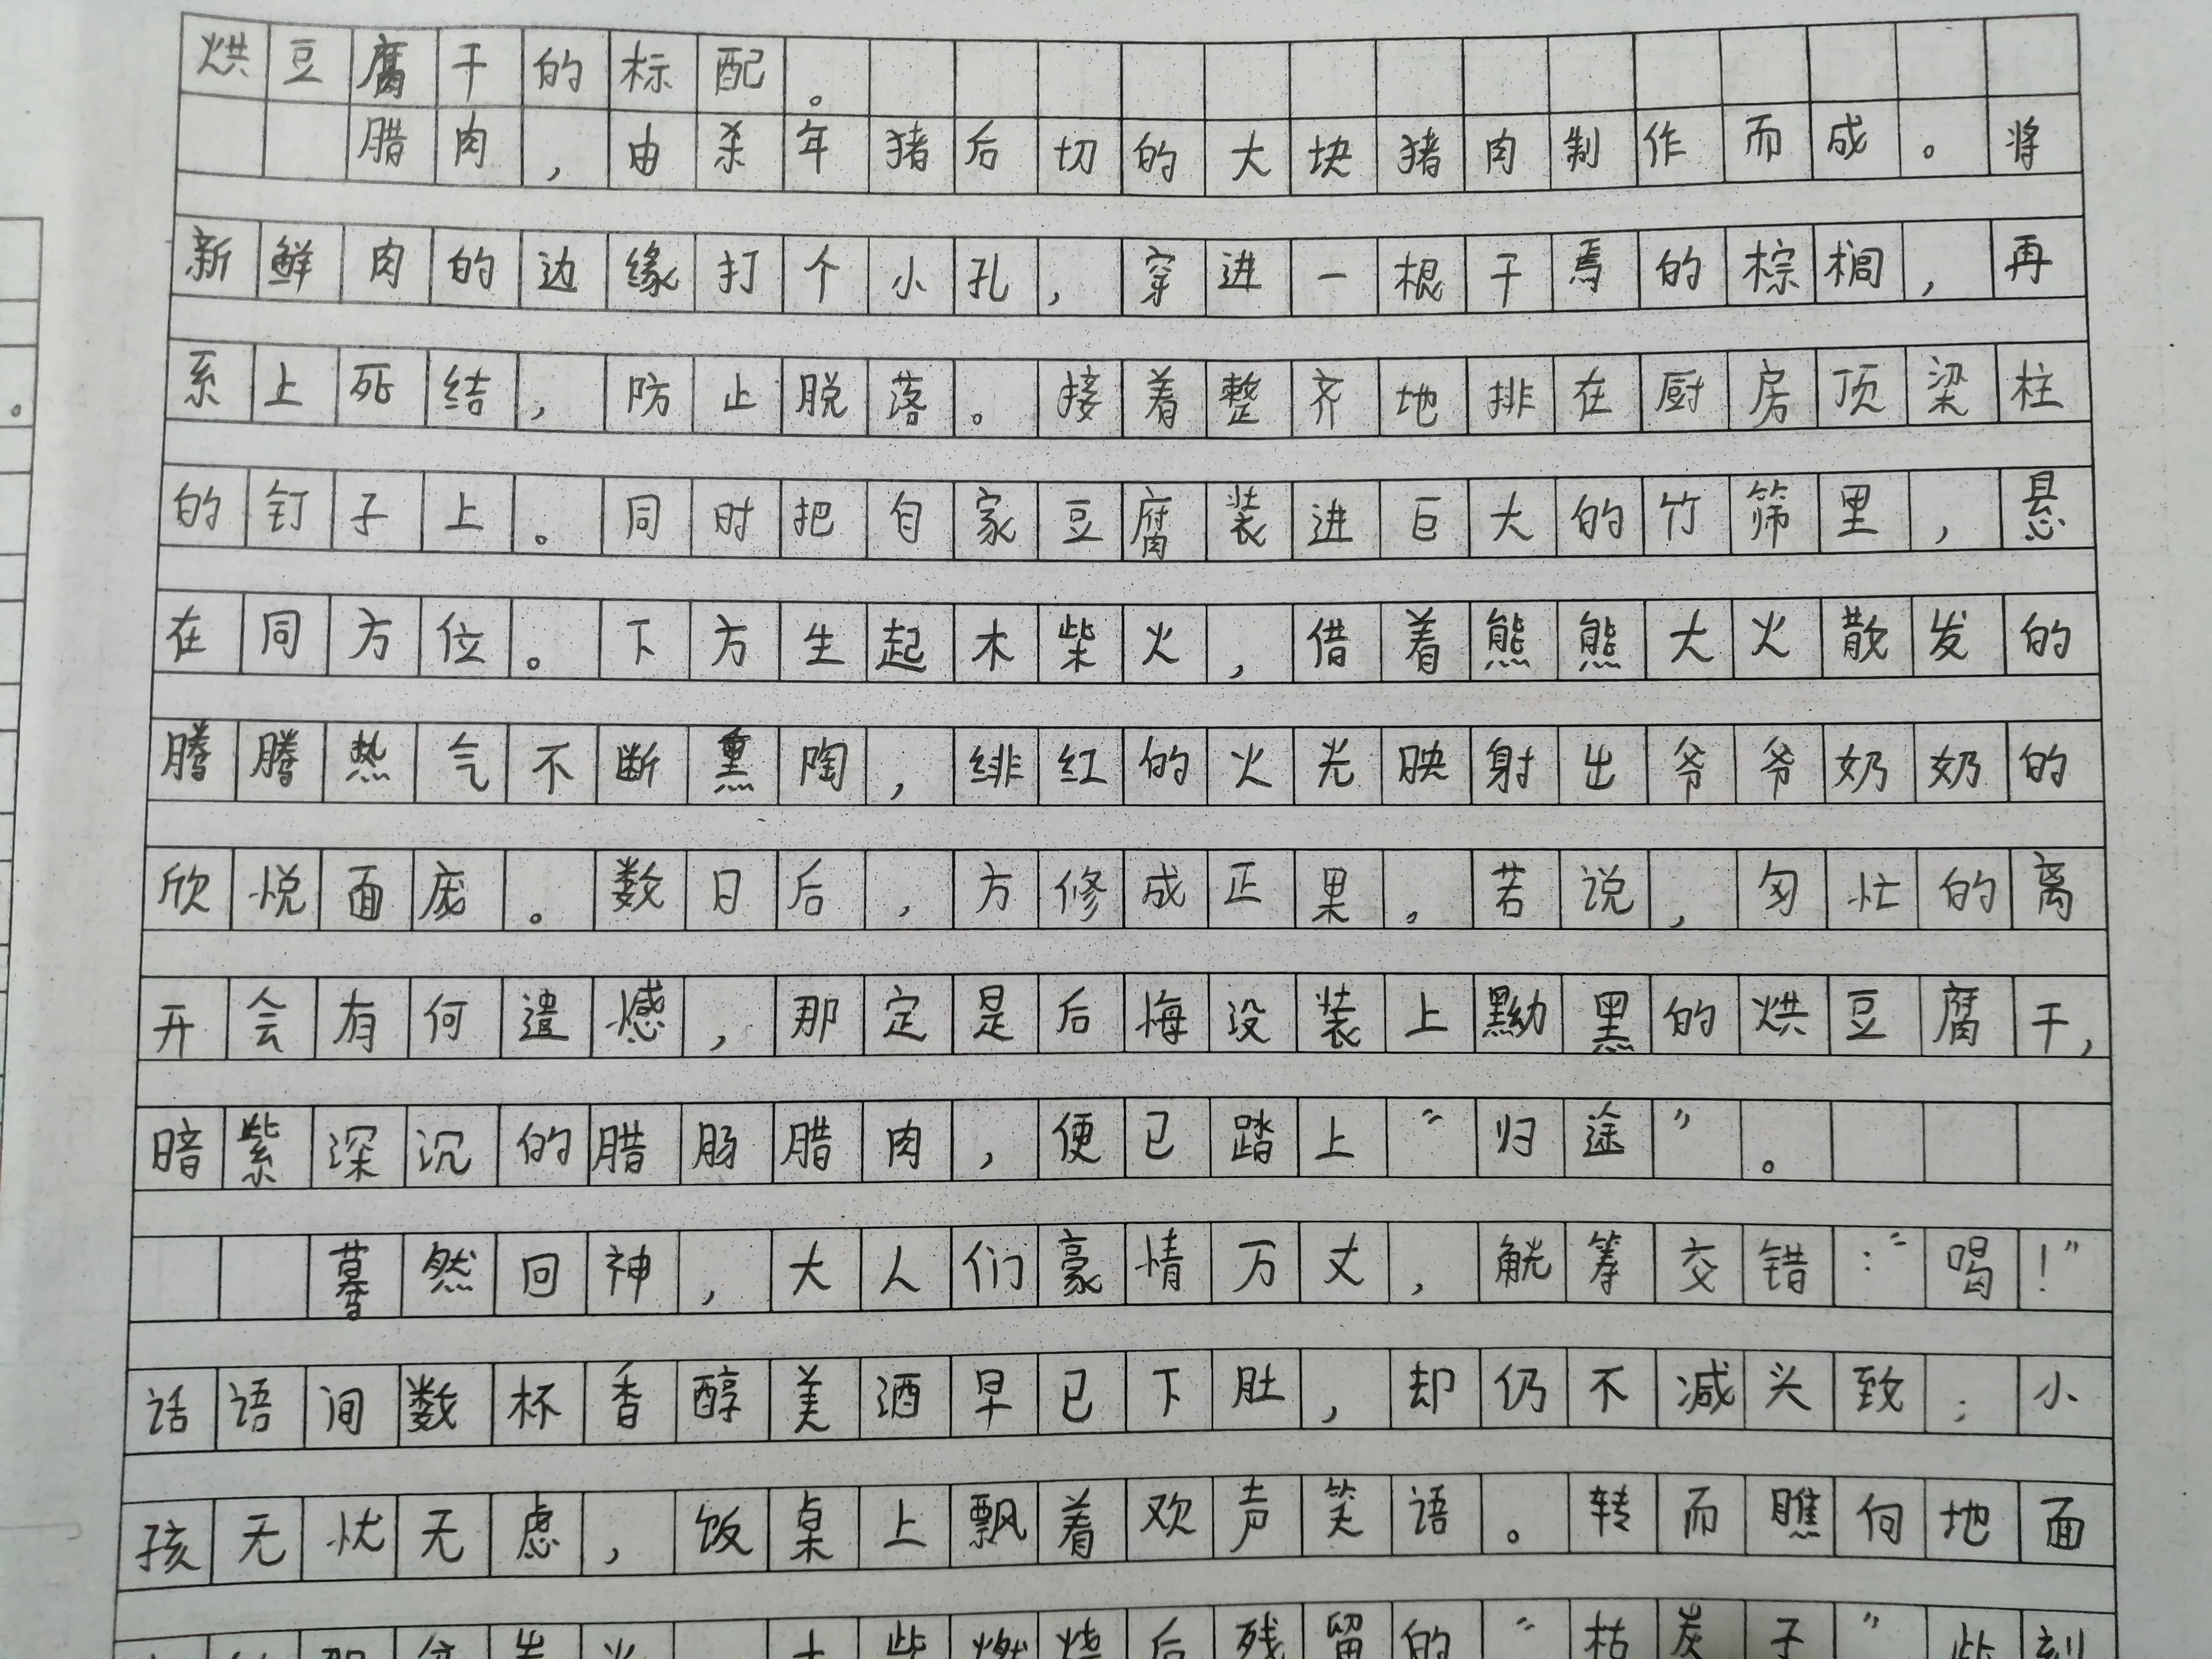 烘豆腐干的标配。
腊肉，由杀年猪后切的大块猪肉制作而成。将
新鲜肉的边缘打个小孔，穿进一根干焉的棕榈，再
系上死结，防止脱落。接着整齐地排在厨房顶梁柱
的钉子上。同时把自家豆腐装进巨大的竹筛里，悬
在同方位。下方生起木柴火，借着熊熊大火散发的
腾腾热气不断熏陶，绯红的火光映射出爷爷奶奶的
欣悦面庞。数日后，方修成正果。若说，匆忙的离
开会有何遗憾，那定是后悔没装上黝黑的烘豆腐干，
暗紫深沉的腊肠腊肉，便已踏上“归途”。
蓦然回神，大人们豪情万丈，觥筹交错：“喝！”
话语间数杯香醇美酒早已下肚，却仍不减兴致；小
孩无忧无虑，饭桌上飘着欢声笑语。转而瞧向地面
柴燃烧后残留的“枯炭子”此刻